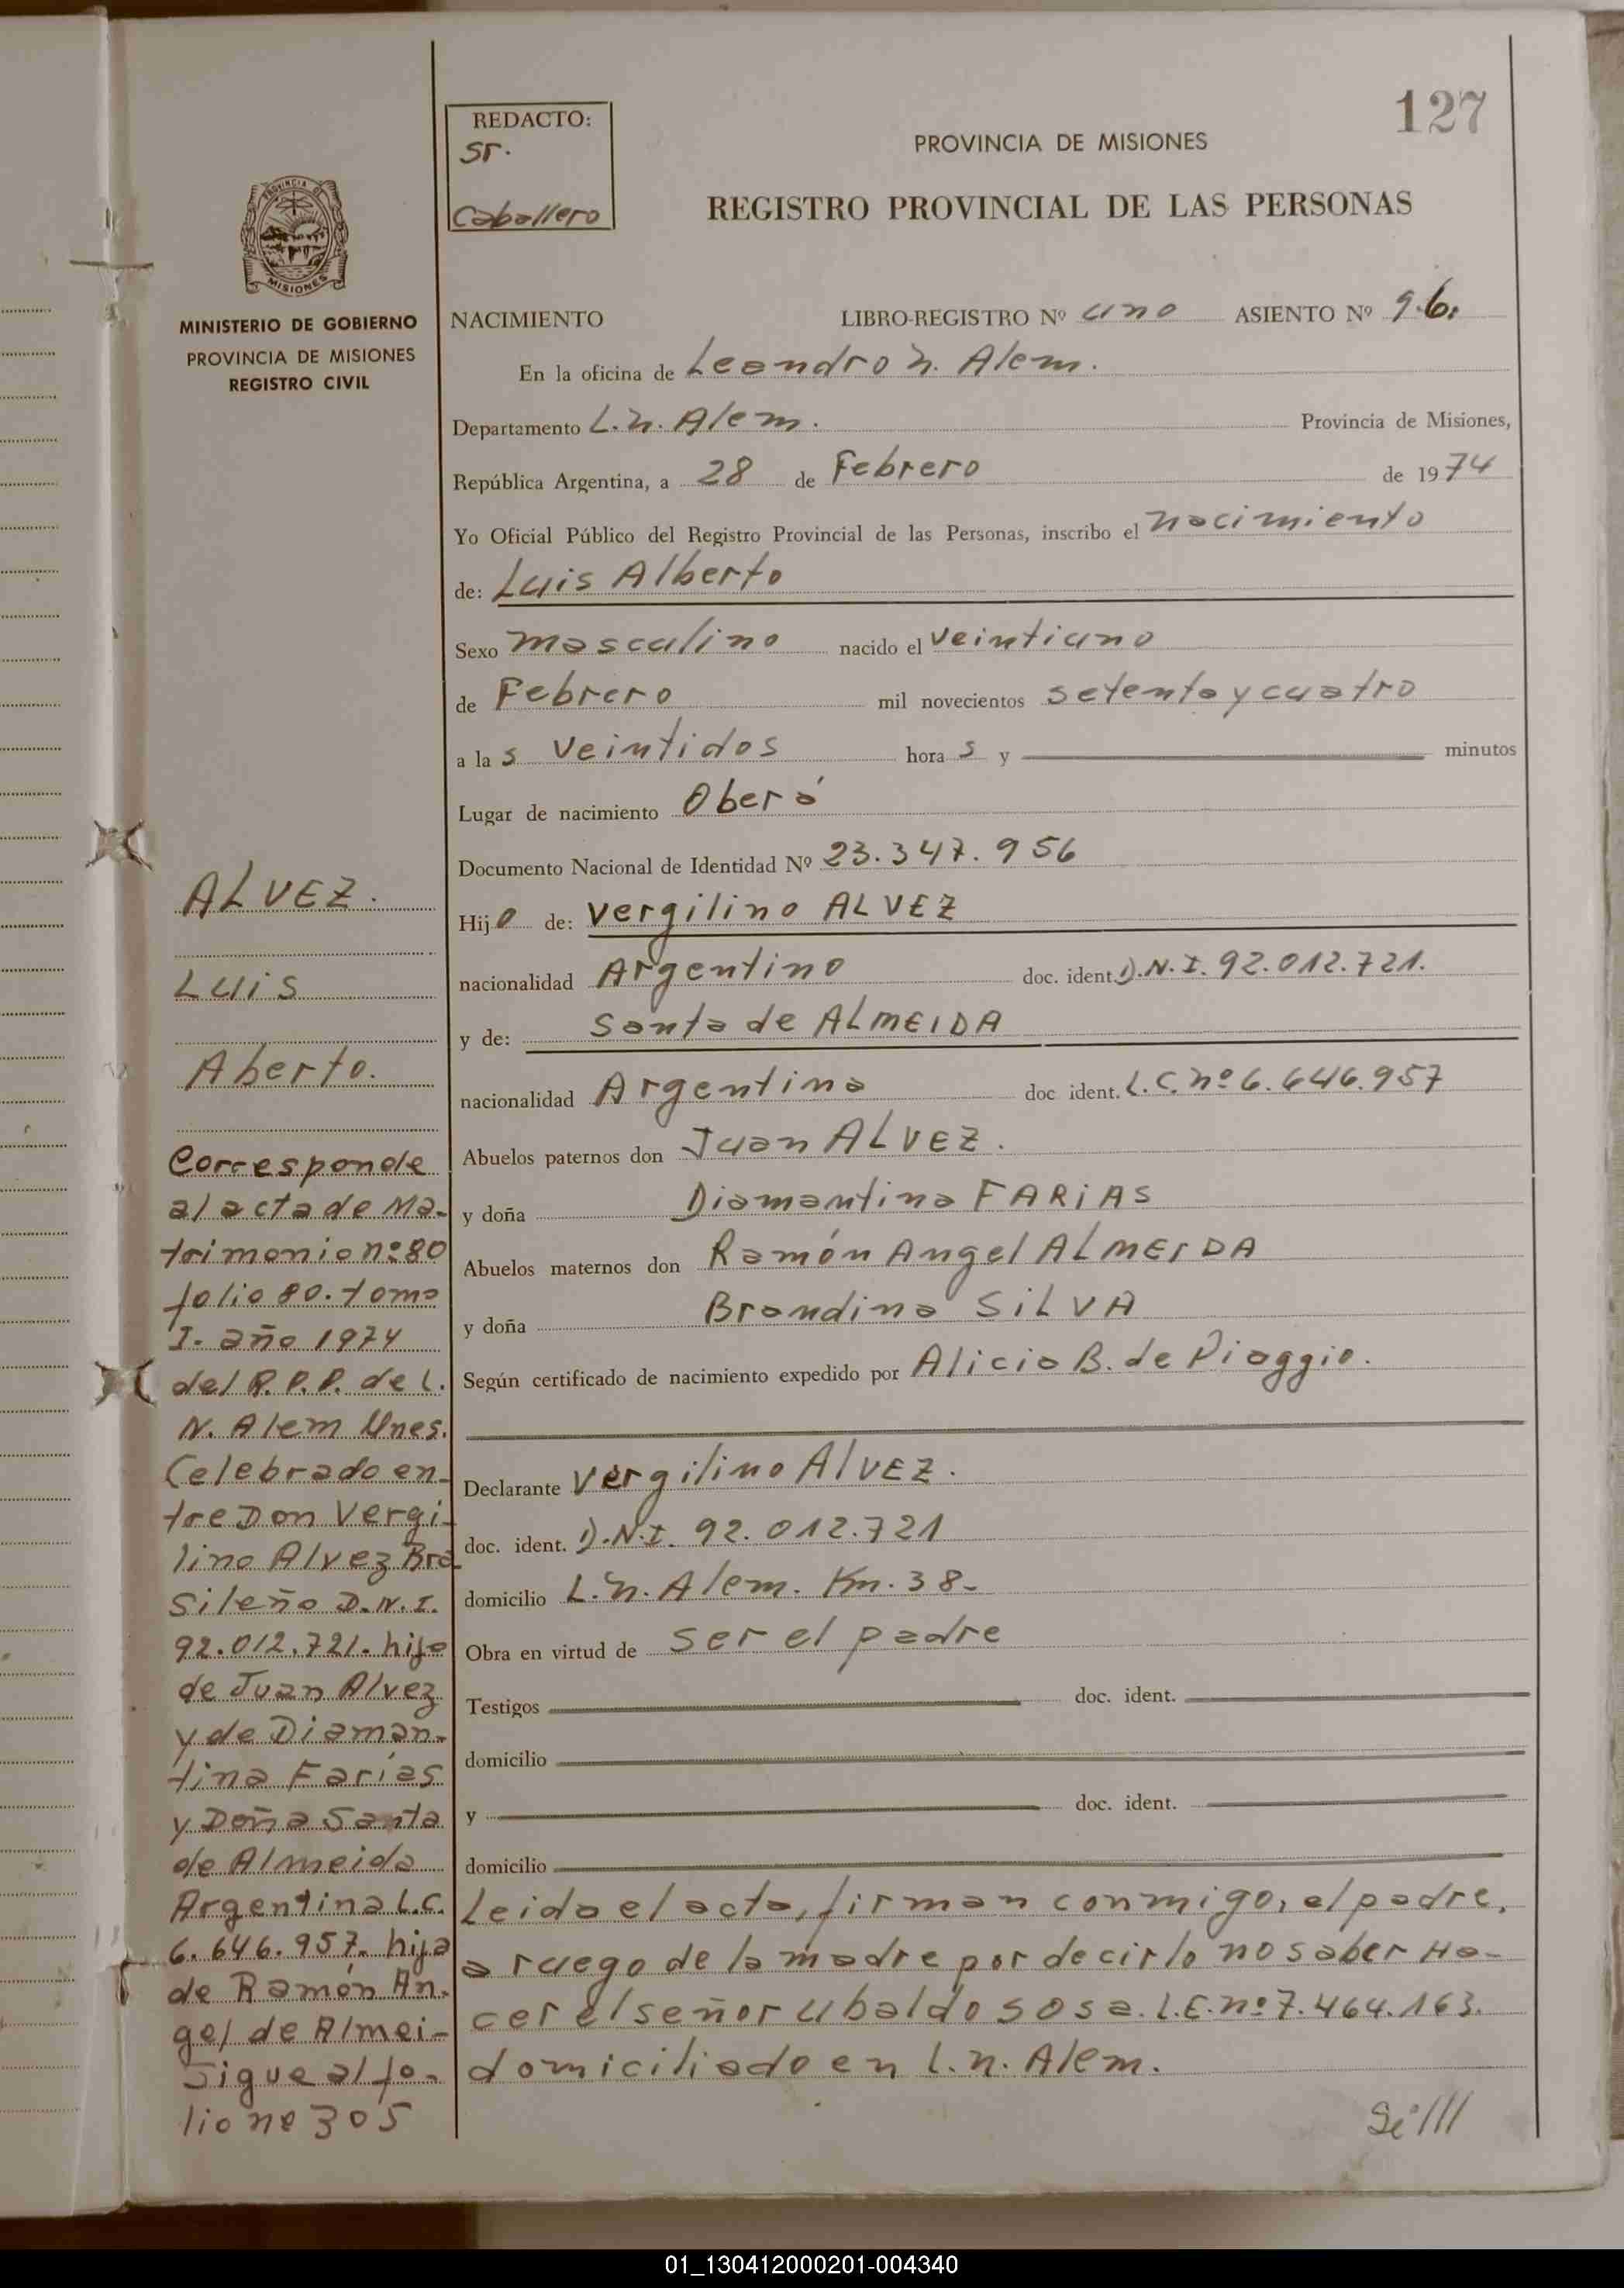 127
REDACTO:
Sr.
Caballero
PROVINCIA DE MISIONES
REGISTRO PROVINCIAL DE LAS PERSONAS
PROVINCIA DE
MISIONES
MINISTERIO DE GOBIERNO
PROVINCIA DE MISIONES
REGISTRO CIVIL
NACIMIENTO LIBRO-REGISTRO Nº uno ASIENTO Nº 96.
En la oficina de Leandro N. Alem.
Departamento L.N. Alem. Provincia de Misiones,
República Argentina, a 28 de Febrero de 1974
Yo Oficial Público del Registro Provincial de las Personas, inscribo el nacimiento
de: Luis Alberto
Sexo masculino nacido el veintiuno
de Febrero mil novecientos setenta y cuatro
a la s veintidos hora s y minutos
Lugar de nacimiento Oberá
Documento Nacional de Identidad Nº 23.347.956
Hij o de: Vergilino ALVEZ
nacionalidad Argentino doc. ident. D.N.I. 92.012.721.
y de: Santa de ALMEIDA
nacionalidad Argentina doc ident. L.C. nº 6.646.957
Abuelos paternos don Juan ALVEZ.
y doña Diamantina FARIAS
Abuelos maternos don Ramón Angel ALMEIDA
y doña Brandina SILVA
Según certificado de nacimiento expedido por Alicia B. de Piaggio.
Declarante Vergilino AlVEZ.
doc. ident. D.N.I. 92.012.721
domicilio L.N. Alem. Km. 38-
Obra en virtud de ser el padre
Testigos doc. ident.
domicilio
y doc. ident.
domicilio
Leida el acta, firman conmigo, el padre,
a ruego de la madre por decirlo no saber Ha-
cer el señor Ubaldo Sosa. L.E. nº 7.464.163.
domiciliado en L.N. Alem.
Si///
ALVEZ.
Luis
Aberto.
Corresponde
al acta de Ma-
trimonio nº 80
folio 80. tomo
I. año 1974
del R.P.P. de L.
N. Alem Mnes.
Celebrado en-
tre Don Vergi-
lino Alvez Bra
sileño D.N.I.
92.012.721. hijo
de Juan Alvez
y de Diaman-
tina Farías
y Doña Santa
de Almeida
Argentina L.C.
6.646.957. hija
de Ramón An-
gel de Almei-
Sigue al fo-
lio nº 305
01_130412000201-004340